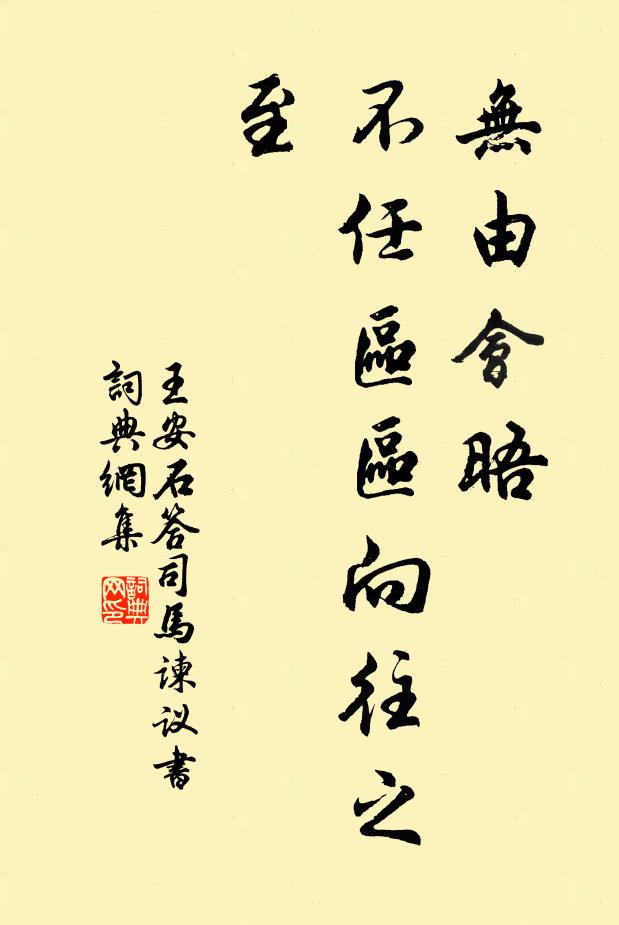 無由會晤
不任區區向往之
至
王安石答司馬諫议書
詞典網集
詞典
网印